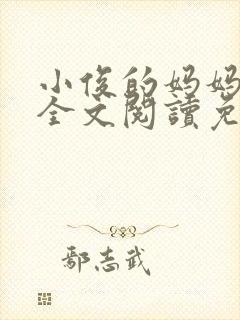 小俊的妈妈
全文閱讀免
鄢志武